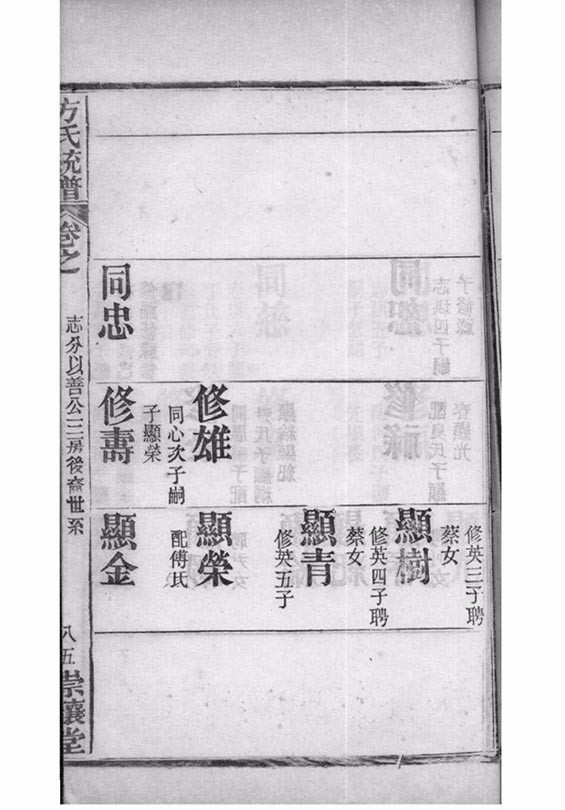 同忠
修雄
同心次子嗣
子顯榮
修壽
修英三子聘
蔡女
顯樹
修英四子聘
蔡女
顯青
修英五子
顯榮
配傅氏
顯金
方氏統譜
卷之
志分以善公三房後裔世系
八五
崇讓堂